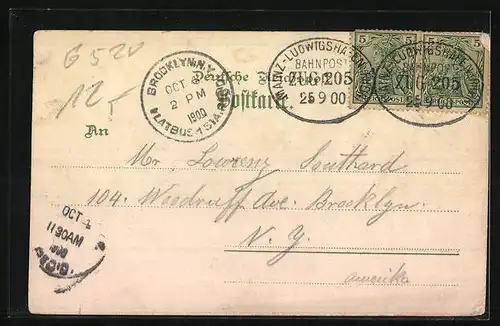 G 520
12,-
BROOKLYN, N.Y.
OCT 4
2 PM
1900
FLATBUSH STA.
Deutsche Reichspost
Postkarte.
MAINZ-LUDWIGSHAFEN
BAHNPOST
ZUG 205
25 9 00
ZUG 205
25 9 00
5 5 5
An
Mr Lowrenz Southard
104. Woodruff Ave. Brooklyn.
N. Y.
Amerika
OCT 4
11 30 AM
1900
REC'D.